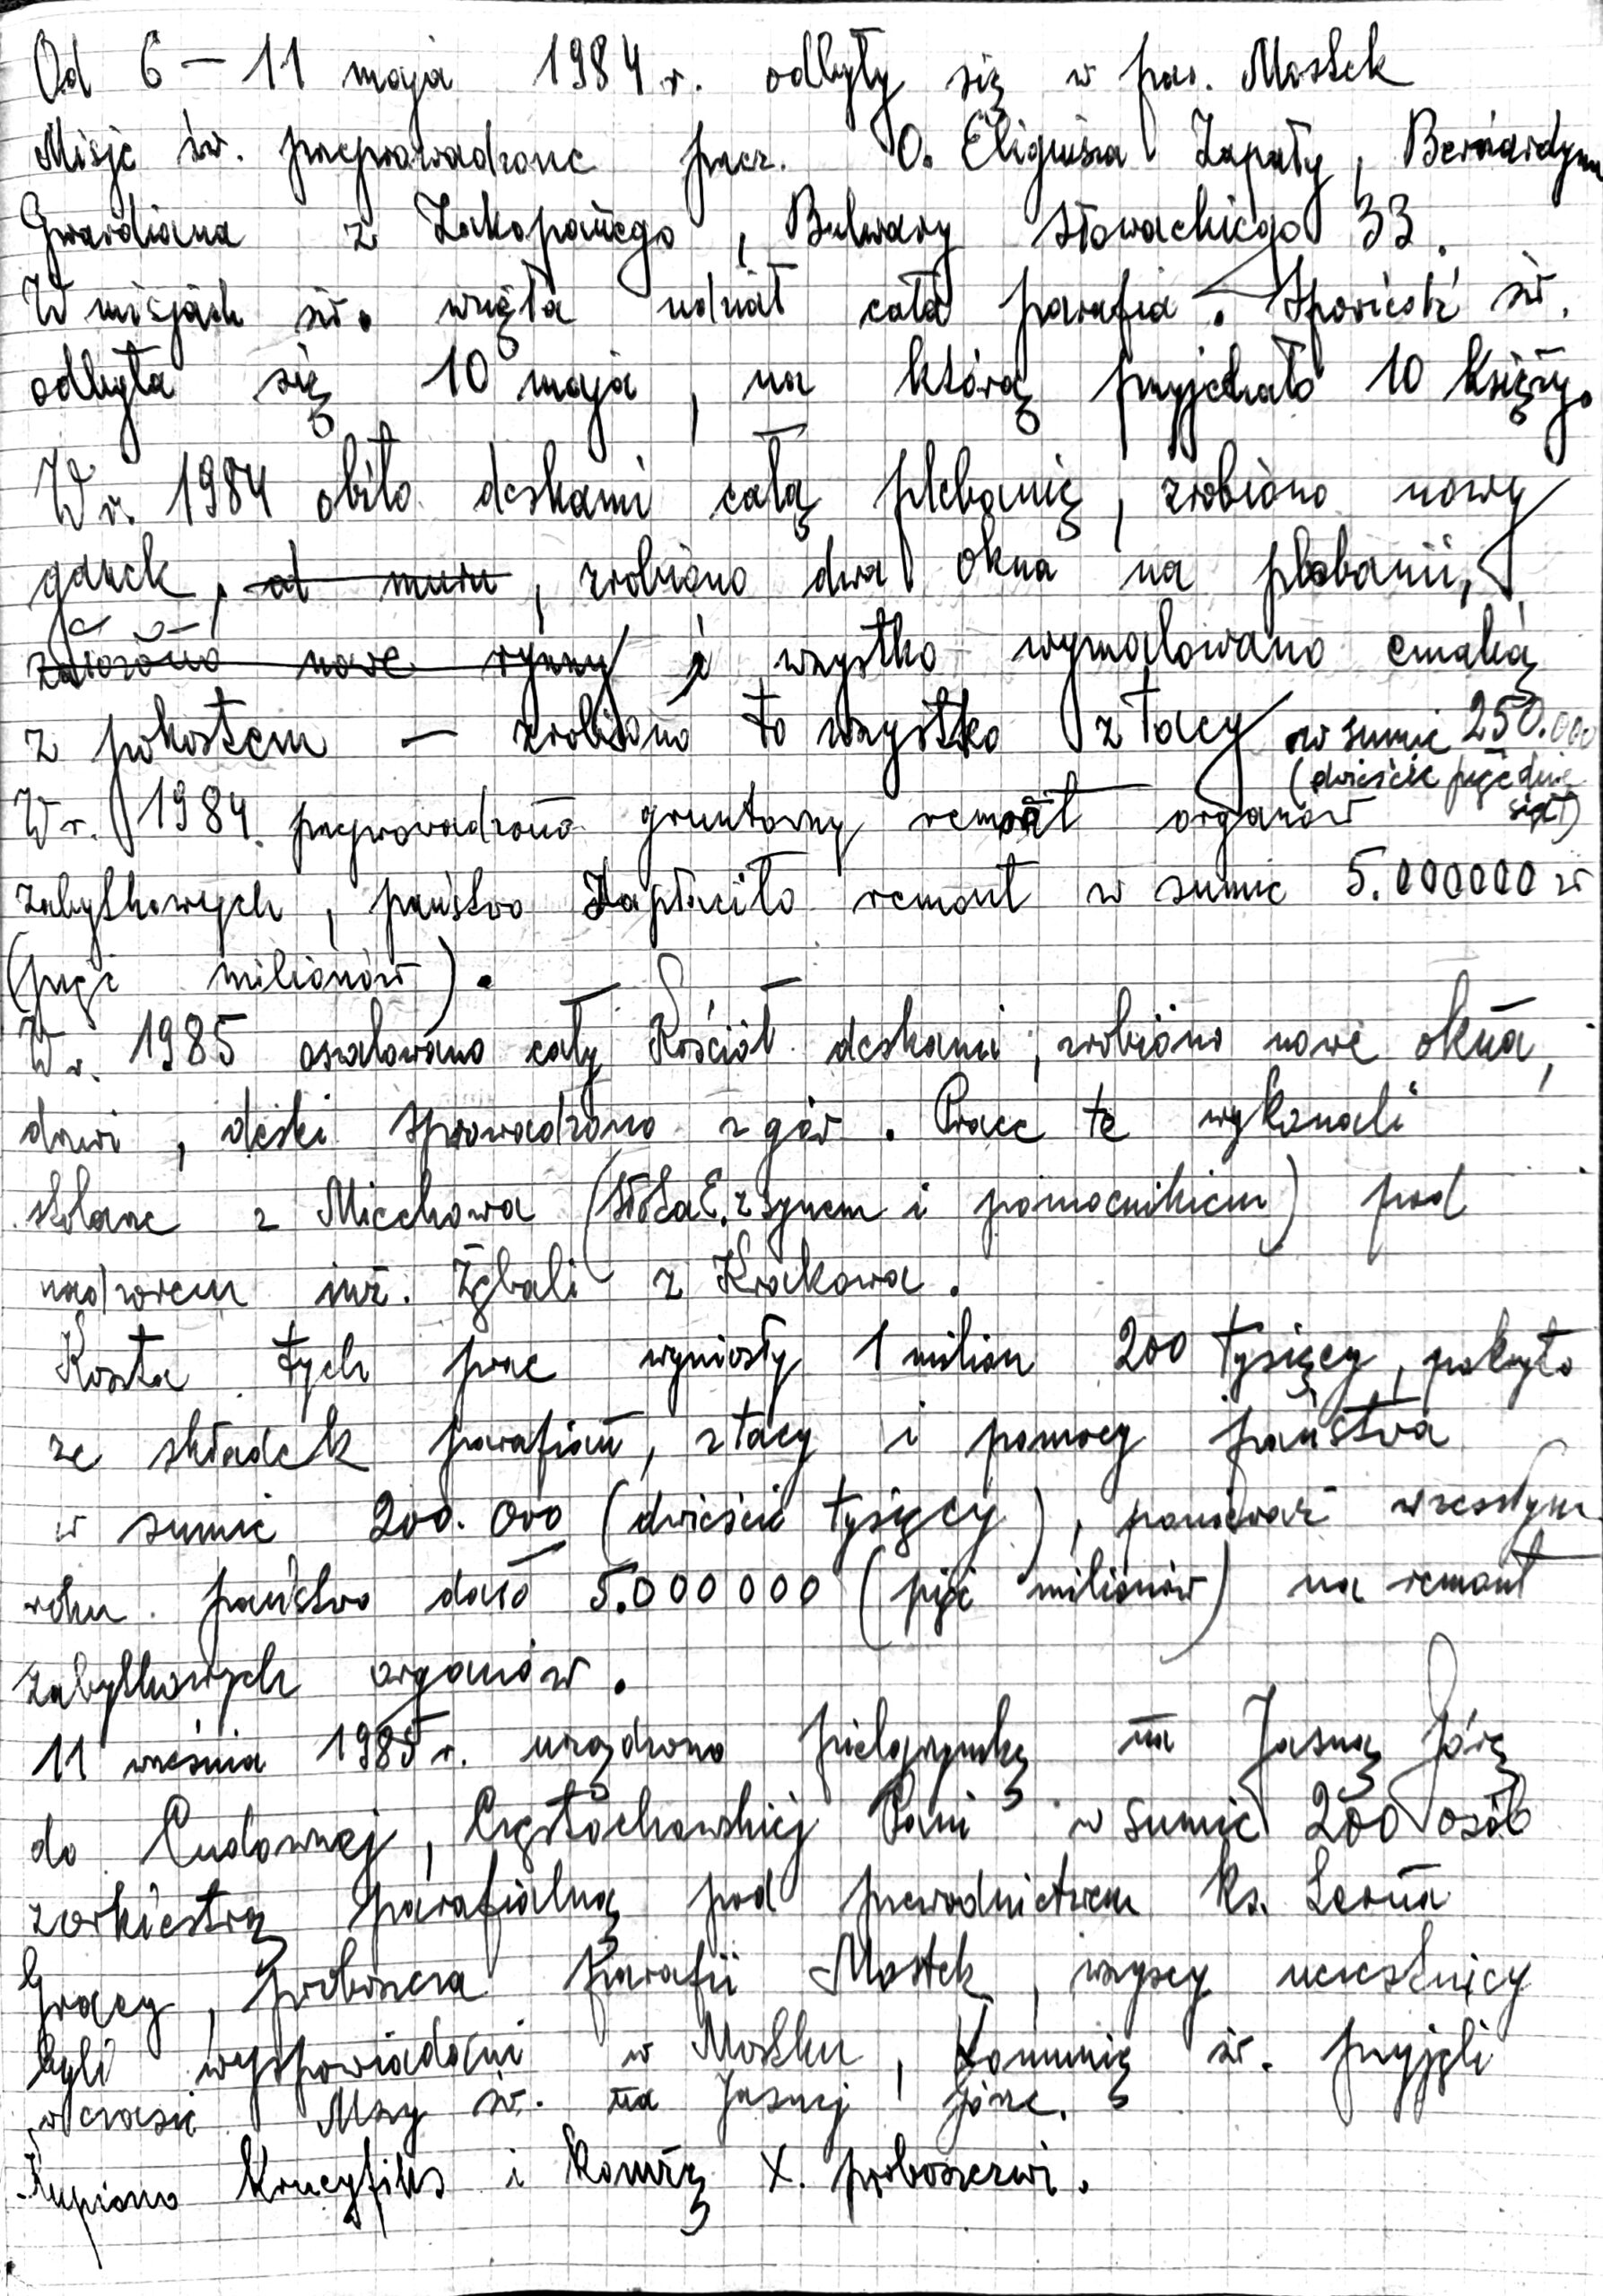 Od 6 – 11 maja 1984 r. odbyły się w par. Mostek
Misje św. przeprowadzone przez. O. Eligiusza Zapały, Bernardyna
Gwardiana z Zakopanego, Bulwary Słowackiego 33.
W misjach św. wzięła udział cała parafia. Spowiedź św.
odbyła się 10 maja, na którą przyjechało 10 księży.
W r. 1984 obito deskami całą plebanię, zrobiono nowy
ganek, od muru, zrobiono dwa okna na plebanii,
założono nowe rynny i wszystko wymalowano emalią
z pokostem — zrobiono to wszystko z tacy w sumie 250.000
(dwieście pięćdzie
siąt)
W r. 1984 przeprowadzono gruntowny remont organów
zabytkowych, państwo zapłaciło remont w sumie 5.000000 zł
(pięć milionów).
W r. 1985 oszalowano cały Kościół deskami, zrobiono nowe okna,
drzwi, deski sprowadzono z gór. Prace te wykonali
stolarze z Miechowa (z synem i pomocnikiem) pod
nadzorem inż. Żgbali z Krakowa.
Koszta tych prac wyniosły 1 milion 200 tysięcy, pokryto
ze składek parafian, z tacy i pomocy państwa
w sumie 200.000 (dwieście tysięcy), ponieważ w zeszłym
roku państwo dało 5.000 000 (pięć milionów) na remont
zabytkowych organów.
11 września 1985 r. urządzono pielgrzymkę na Jasną Górę
do Cudownej, Częstochowskiej Pani w sumie 200 osób
z orkiestrą parafialną pod przewodnictwem ks. Leona
Gracy, proboszcza parafii Mostek, wszyscy uczestnicy
byli wyspowiadani w Mostku, Komunię św. przyjęli
w czasie Mszy św. na Jasnej Górze.
Kupiono Krucyfiks i Komżę X. proboszczowi.